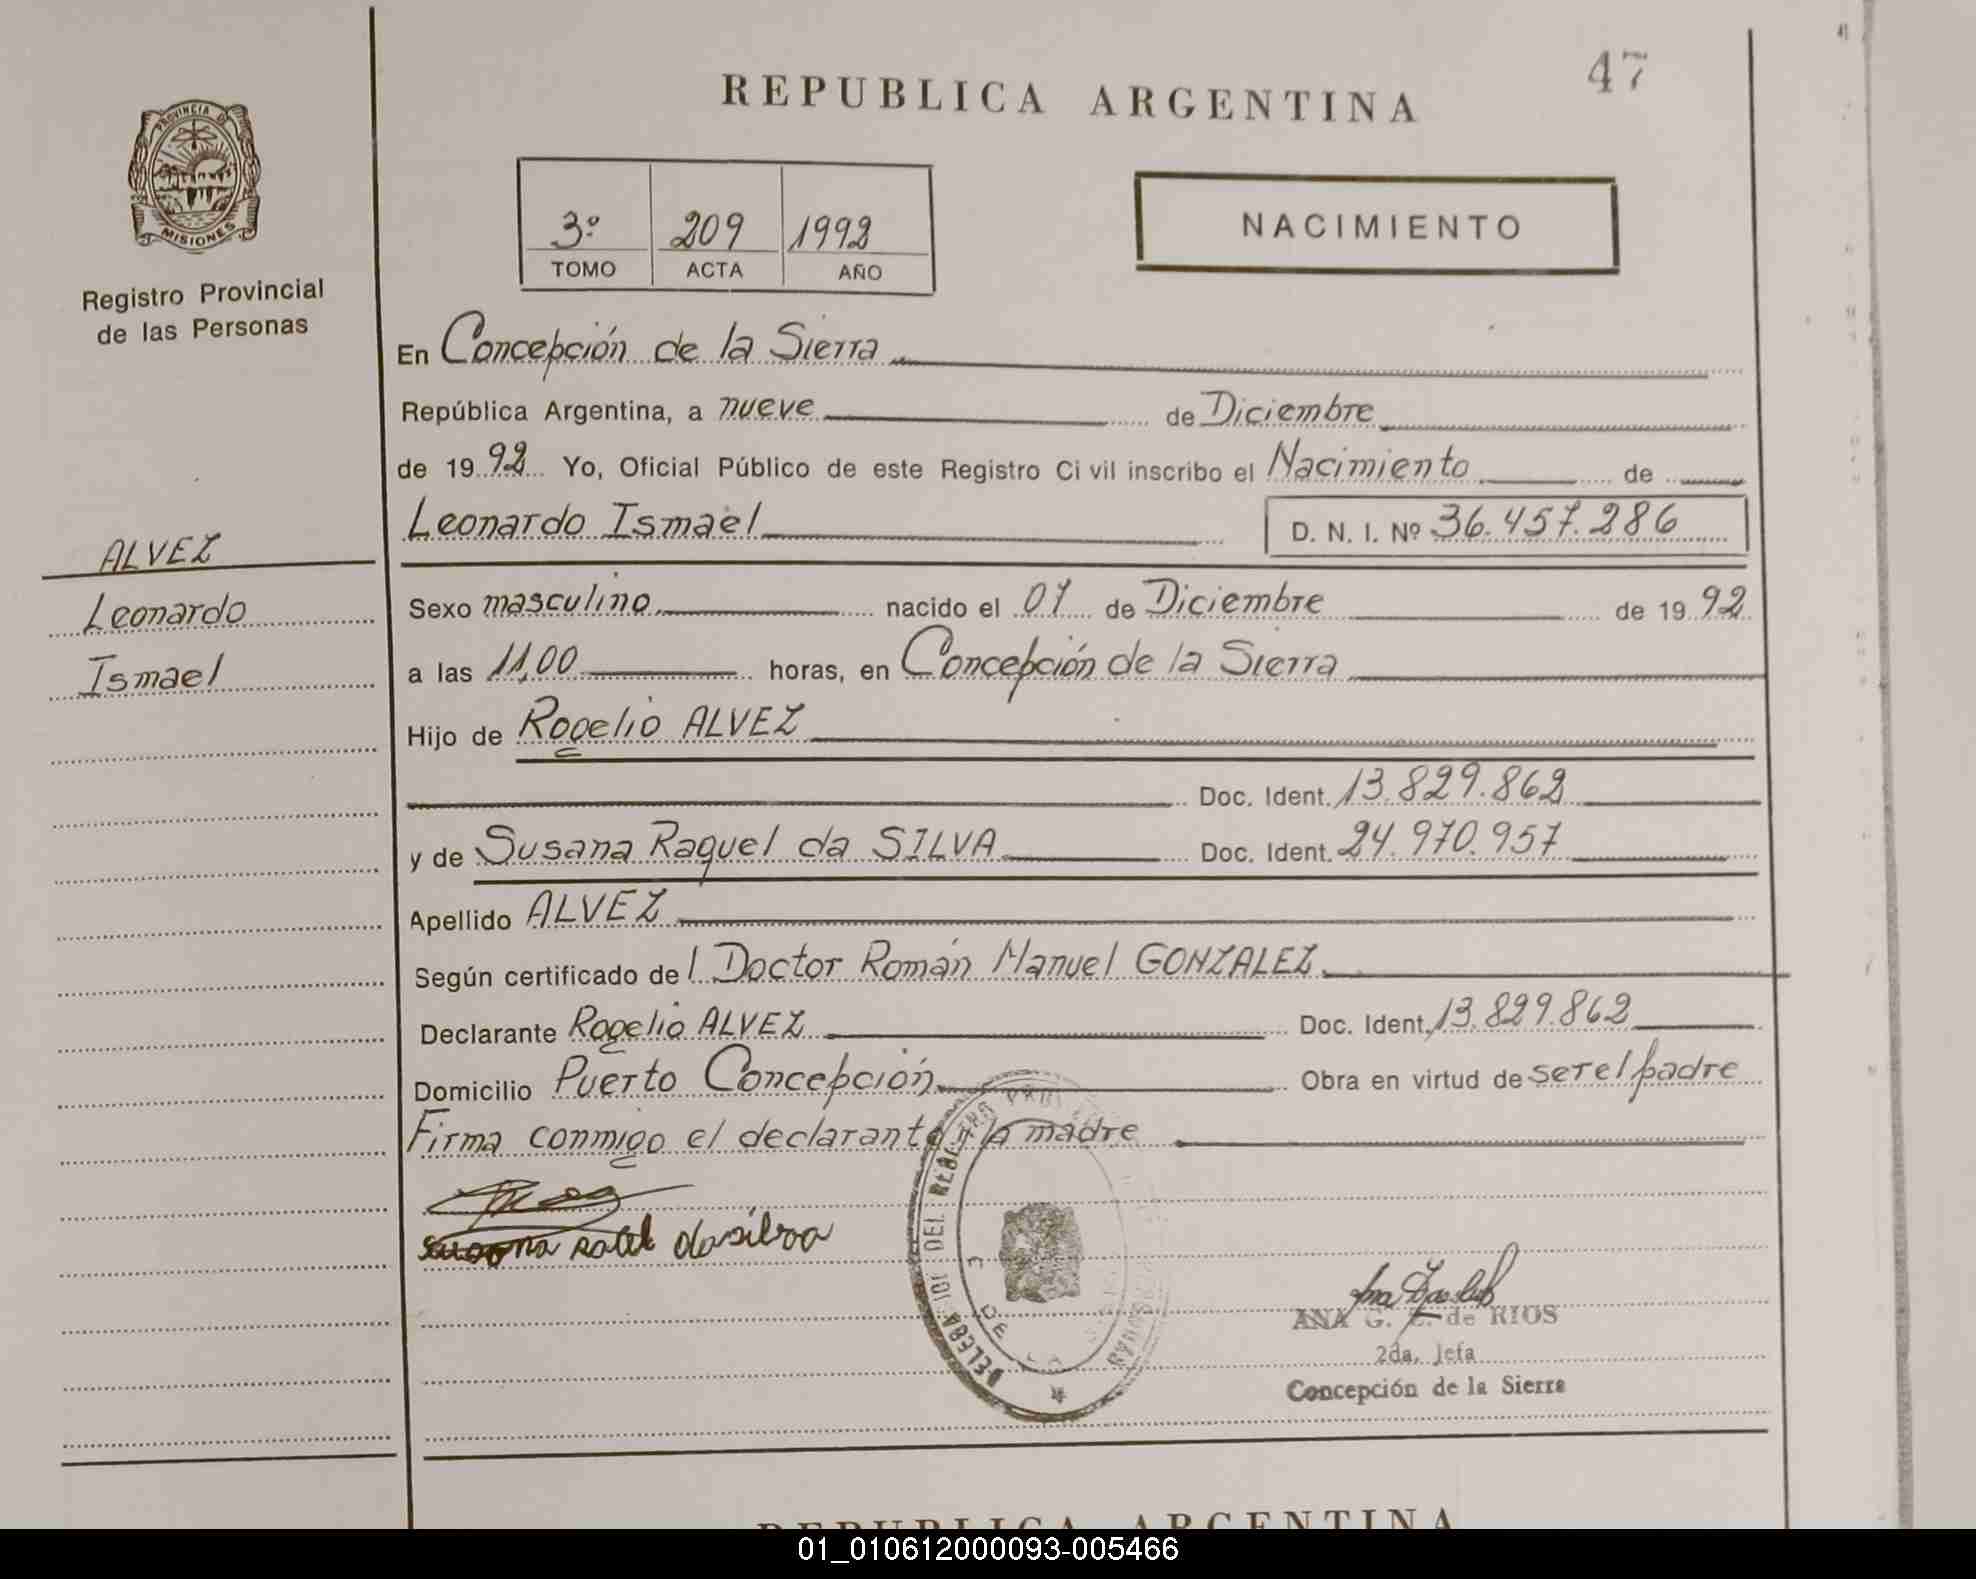 47
REPUBLICA ARGENTINA
PROVINCIA DE
MISIONES
Registro Provincial
de las Personas
3º 209 1992
TOMO ACTA AÑO
NACIMIENTO
En Concepción de la Sierra
República Argentina, a nueve de Diciembre
de 19 92 Yo, Oficial Público de este Registro Civil inscribo el Nacimiento de
Leonardo Ismael D. N. I. Nº 36.457.286
ALVEZ
Leonardo
Ismael
Sexo masculino nacido el 07 de Diciembre de 19 92
a las 11,00 horas, en Concepción de la Sierra
Hijo de Rogelio ALVEZ
Doc. Ident. 13.829.862
y de Susana Raquel da SILVA Doc. Ident. 24.970.957
Apellido ALVEZ
Según certificado del Doctor Román Manuel GONZALEZ
Declarante Rogelio ALVEZ Doc. Ident. 13.829.862
Domicilio Puerto Concepción Obra en virtud de ser el padre
Firma conmigo el declarante y la madre
dasilva
DEL
DE
ANA G. de RIOS
2da. Jefa
Concepción de la Sierra
REPUBLICA ARGENTINA
01_010612000093-005466